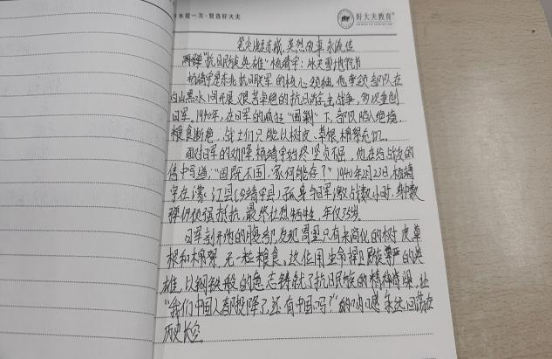 来就一次·领选好大夫
好大夫教育
笔尖 英烈故事永流传
"抗日民族英雄"杨靖宇:冰天雪地
杨靖宇是东北抗日联军的核心领袖,他率领部队在
白山黑水间开展艰苦卓绝的抗日游击战争,多次重创
日军。1940年,在日军的"围剿"下,部队陷入绝境,
粮食断绝,战士们只能以树皮、草根、棉絮充饥。
面对日军的劝降,杨靖宇始终坚贞不屈,他在给战友的
信中写道:"国既不国,家何能存?"1940年2月23日,杨靖
宇在濛江县(今靖宇县)孤身与日军激战数小时,身中数
弹仍顽强抵抗,最终壮烈牺牲,年仅35岁
日军剖开他的腹部,发现胃里只有未消化的树皮草
根和棉絮,无一粒粮食。这位用生命捍卫民族尊严的英
雄,以钢铁般的意志铸就了抗日民族的精神,
"我们中国人都投降了,还有中国吗?"的 永远回荡在
历史长空